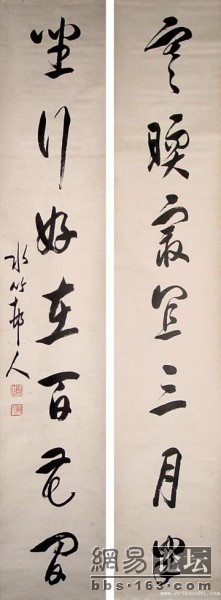 寒暖最宜三月
坐行好在百花間
水竹邨人
網易论坛
bbs.163.com